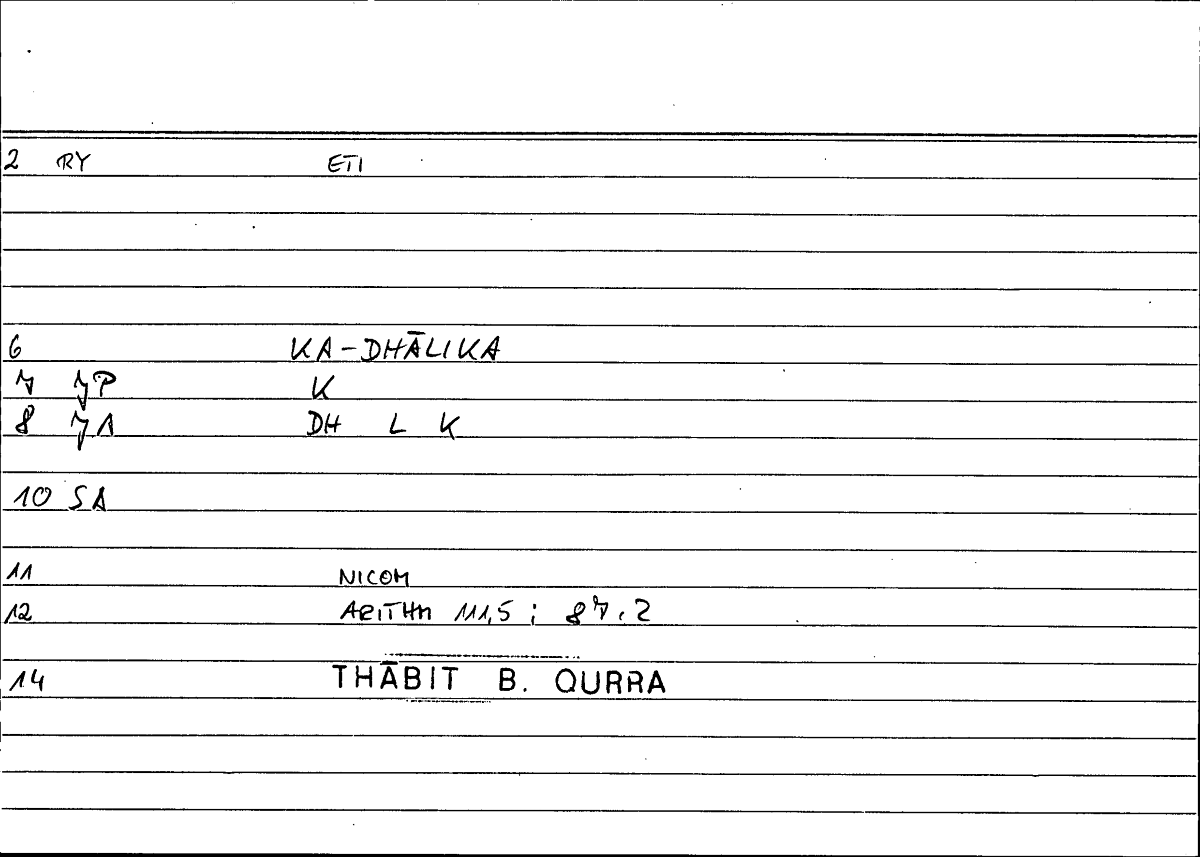 2 RY ETI
6 KA-DHĀLIKA
7 JP K
8 JA DH L K
10 SA
11 NICOM
12 ARITHM 111,5 ; 87.2
14 THĀBIT B. QURRA